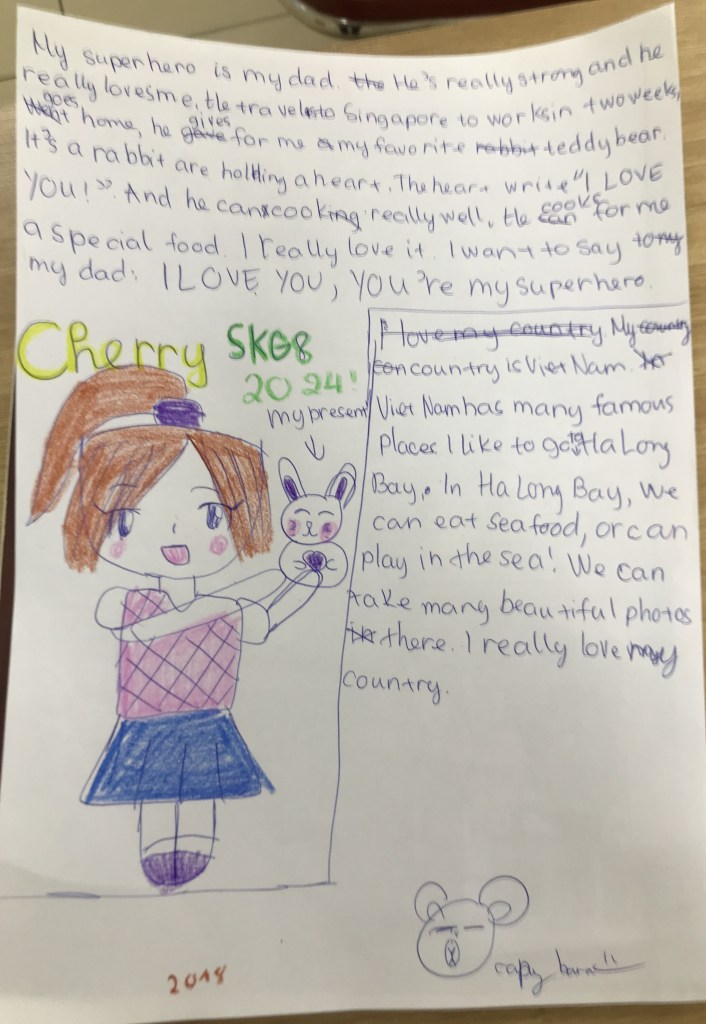 My superhero is my dad. the He's really strong and he
really loves me. He travels to Singapore to works in two weeks,
Went goes home, he gave gives for me a my favorite rabbit teddy bear.
It's a rabbit are holding a heart. The heart write "I LOVE
YOU!". And he can cooking really well. He can cooks for me
a special food. I really love it. I want to say to my
my dad: I LOVE YOU, YOU're my superhero.
Cherry SKG8
2024!
my present
I love my country. My country
country is Viet Nam.
Viet Nam has many famous
places. I like to go to Ha Long
Bay. In Ha Long Bay, We
can eat seafood, or can
play in the sea! We can
take many beautiful photos
there. I really love my
country.
capy bara
2018